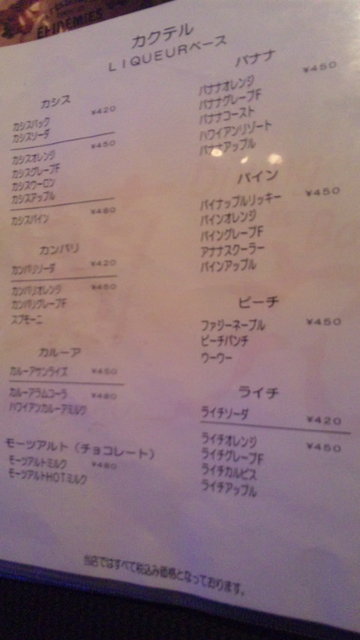 カクテル
LIQUEURベース
カシス
¥420
カシスソーダ
¥450
カシスオレンジ
カシスグレープF
カシスウーロン
カシスアップル
カシスパイン
¥480
カンパリ
カンパリソーダ
¥420
カンパリオレンジ
¥450
カンパリグレープF
スプモーニ
カルーア
カルーアサンライズ
¥450
カルーアラムコーラ
¥480
ハワイアンカルーアミルク
モーツアルト(チョコレート)
モーツアルトミルク
¥480
モーツアルトHOTミルク
バナナ
¥450
バナナオレンジ
バナナグレープF
バナナコースト
ハワイアンリゾート
バナナアップル
パイン
パイナップルリッキー
¥450
パインオレンジ
パイングレープF
アナナスクーラー
パインアップル
ピーチ
ファジーネーブル
¥450
ピーチパンチ
ウーウー
ライチ
ライチソーダ
¥420
ライチオレンジ
¥450
ライチグレープF
ライチカルピス
ライチアップル
当店ではすべて税込み価格となっております。